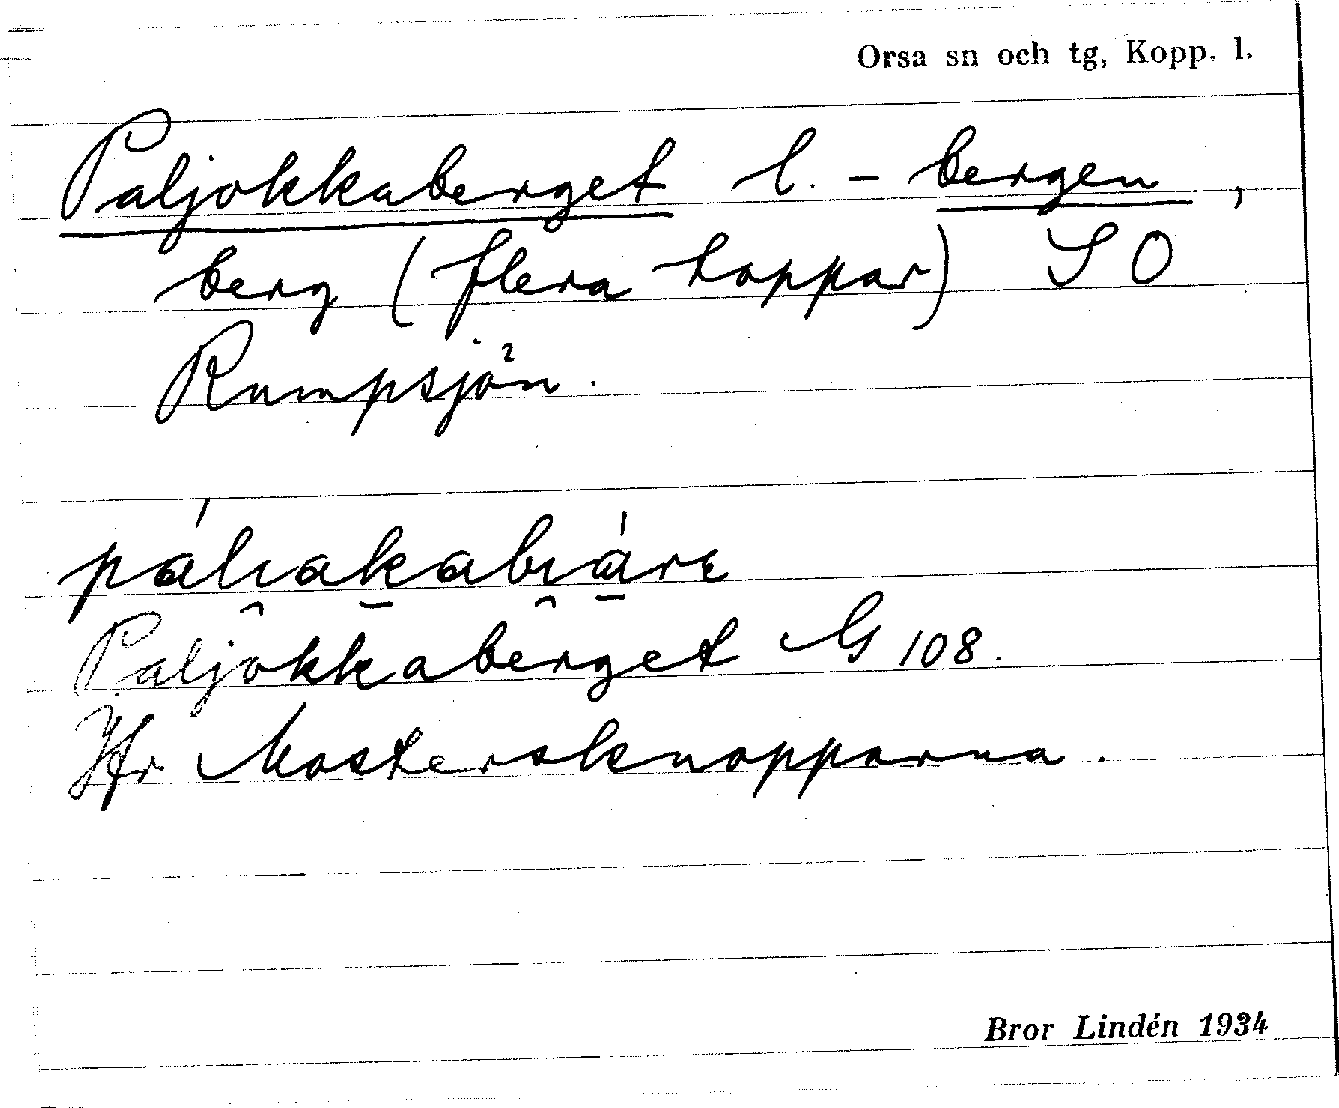 Orsa sn och tg, Kopp. l.
Paljokkaberget l. - bergen,
berg (flera toppar) SO
Rumpsjön.
pálıakabıárε
Paljokkaberget G 108.
Jfr Mostersknopparna.
Bror Lindén 1934